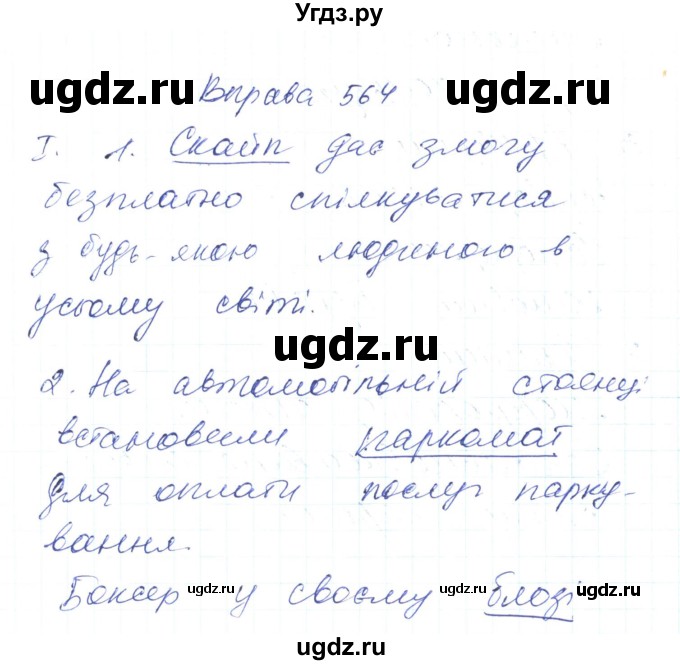 Угдз.ру
ugdz.ru
ugdz.ru
Вправа 564
І. 1. Скайп дає змогу
безплатно спілкуватися
з будь-якою людиною в
усьому світі.
ugdz.ru
2. На автомобільній стоянці
встановили паркомат
для оплати послуг парку-
вання.
Боксер у своєму блозі
ugdz.ru
ugdz.ru
ugdz.ru
ugdz.ru
ugdz.ru